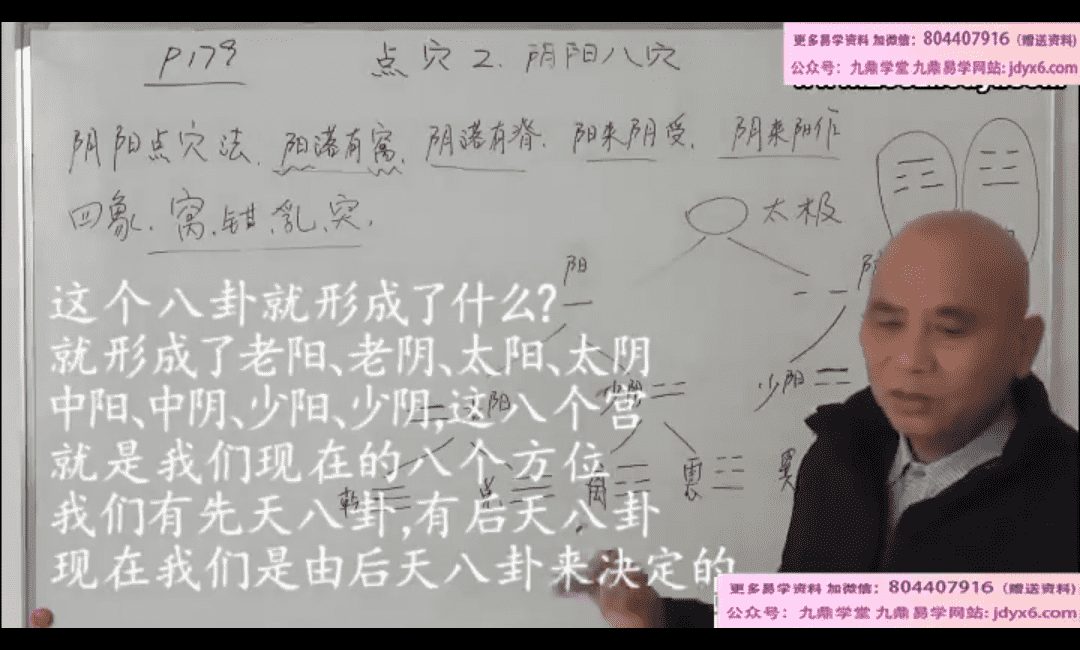 更多易学资料 加微信：804407916（赠送资料）
公众号：九鼎学堂 九鼎易学网站: jdyx6.com
P179
点穴2. 阴阳八穴
阴阳点穴法、阳落有窝、阴落有脊、阳来阴受、阴来阳作
四象、窝、钳、乳、突、
太极
阳
少阳
乾
震
这个八卦就形成了什么?
就形成了老阳、老阴、太阳、太阴
中阳、中阴、少阳、少阴,这八个宫
就是我们现在的八个方位
我们有先天八卦,有后天八卦
现在我们是由后天八卦来决定的
更多易学资料 加微信：804407916（赠送资料)
公众号：九鼎学堂 九鼎易学网站: jdyx6.com